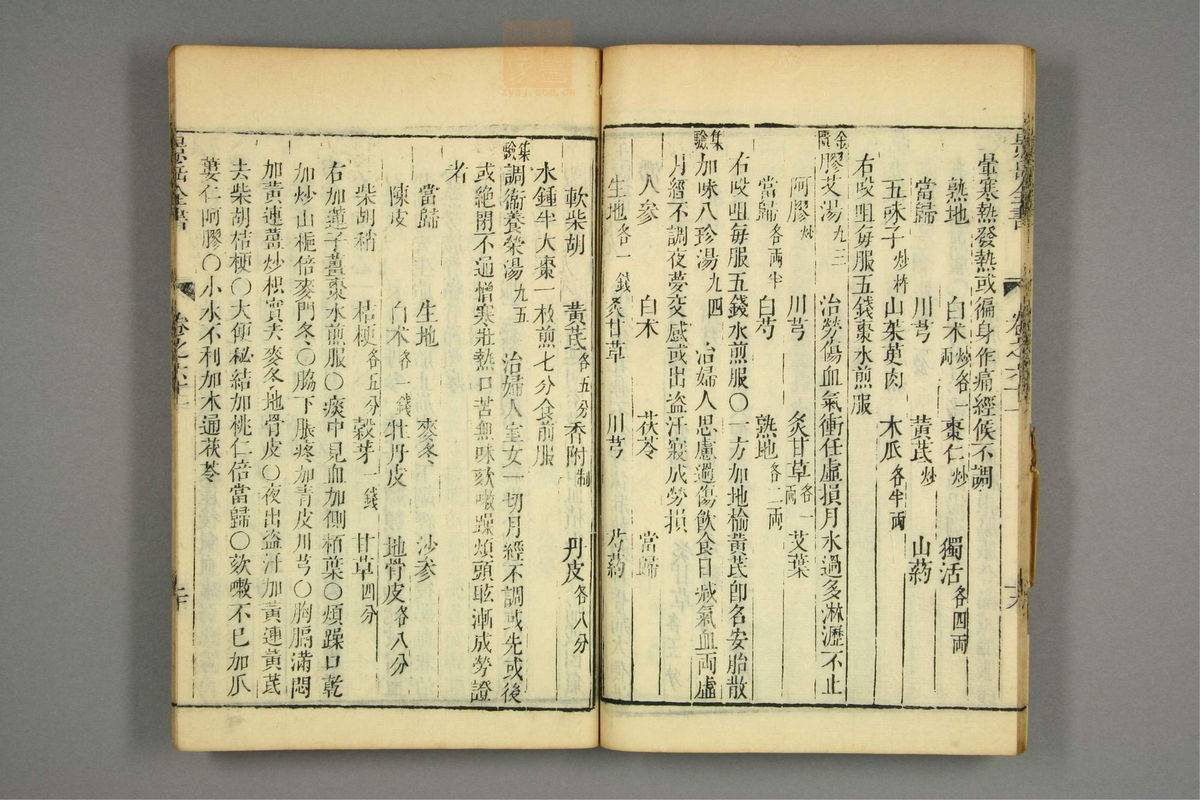 暈寒熱發熱或徧身作痛經候不調
熟地 白术炒各一兩 棗仁炒 獨活各四兩
當歸 川芎 黃芪炒 山藥
五味子炒杵 山茱萸肉 木瓜各半兩
右㕮咀每服五錢棗水煎服
金匱 膠艾湯九三 治勞傷血氣衝任虛損月水過多淋瀝不止
阿膠炒 川芎 炙甘草各一兩 艾葉
當歸各兩半 白芍 熟地各二兩
右㕮咀每服五錢水煎服〇一方加地榆黃芪卽名安胎散
集驗 加味八珍湯九四 治婦人思慮過傷飲食日減氣血兩虛
月經不調夜夢交感或出盜汗寢成勞損
人參 白术 茯苓 當歸
生地各一錢 炙甘草 川芎 芍藥
軟柴胡 黃芪各五分 香附制 丹皮各八分
水鍾半大棗一枚煎七分食前服
集驗 調衞養榮湯九五 治婦人室女一切月經不調或先或後
或絕閉不通憎寒壯熱口苦無味欬嗽躁煩頭眩漸成勞證
者
當歸 生地 麥冬 沙參
陳皮 白术各一錢 牡丹皮 地骨皮各八分
柴胡稍 桔梗各五分 穀芽一錢 甘草四分
右加蓮子薑棗水煎服〇痰中見血加側栢葉〇煩躁口乾
加炒山梔倍麥門冬〇脇下脹疼加青皮川芎〇胸膈滿悶
加黃連薑炒枳實去麥冬地骨皮〇夜出盜汗加黃連黃芪
去柴胡桔梗〇大便秘結加桃仁倍當歸〇欬嗽不已加瓜
蔞仁阿膠〇小水不利加木通茯苓